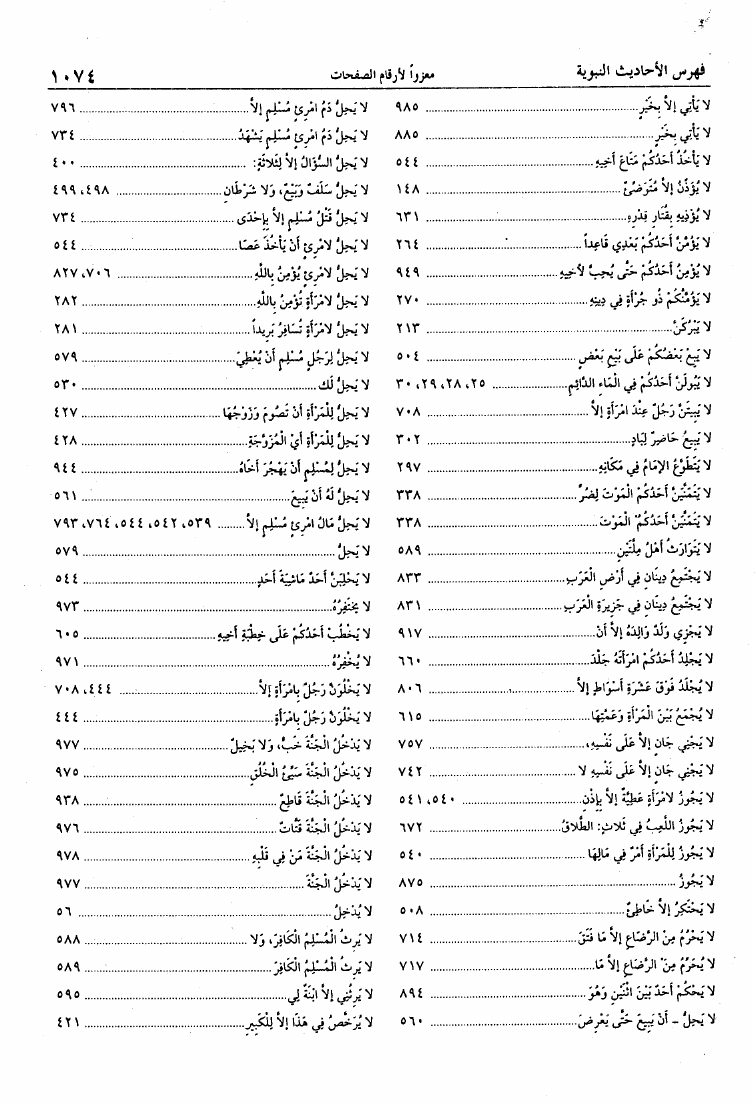 فهرس الأحاديث النبوية
معزواً لأرقام الصفحات
١٠٧٤
لا يَأْتِي إلاَّ بِخَيْرٍ ... ٩٨٥
لا يَأْتِي بِخَيْرٍ ... ٨٨٥
لا يَأْخُذُ أَحَدُكُمْ مَتَاعَ أَخِيهِ ... ٥٤٤
لا يُؤَذِّنُ إلاَّ مُتَوَضِّئٌ ... ١٤٨
لا يُؤْذِيهِ بِقُتَارِ قِدْرِهِ ... ٦٣١
لا يَؤُمَّنَّ أَحَدُكُمْ بَعْدِي قَاعِداً ... ٢٦٤
لا يُؤْمِنُ أَحَدُكُمْ حَتَّى يُحِبَّ لأخِيهِ ... ٩٤٩
لا يَؤُمَّنَّكُمْ ذُو جُرْأَةٍ فِي دِينِهِ ... ٢٧٠
لا يَبْرُكَنَّ ... ٢١٣
لا يَبِعْ بَعْضُكُمْ عَلَى بَيْعِ بَعْضٍ ... ٥٠٤
لا يَبُولَنَّ أَحَدُكُمْ فِي الْمَاءِ الدَّائِمِ ... ٢٥، ٢٨، ٢٩، ٣٠
لا يَبِيتَنَّ رَجُلٌ عِنْدَ امْرَأَةٍ إلاَّ ... ٧٠٨
لا يَبِيعُ حَاضِرٌ لِبَادٍ ... ٣٠٢
لا يَتَطَوَّعُ الإمَامُ فِي مَكَانِهِ ... ٢٩٧
لا يَتَمَنَّيَنَّ أَحَدُكُمْ الْمَوْتَ لِضُرٍّ ... ٣٣٨
لا يَتَمَنَّيَنَّ أَحَدُكُمْ الْمَوْتَ ... ٣٣٨
لا يَتَوَارَثُ أَهْلُ مِلَّتَيْنِ ... ٥٨٩
لا يَجْتَمِعُ دِينَانِ فِي أَرْضِ الْعَرَبِ ... ٨٣٣
لا يَجْتَمِعُ دِينَانِ فِي جَزِيرَةِ الْعَرَبِ ... ٨٣١
لا يَجْزِي وَلَدٌ وَالِدَهُ إلاَّ أَنْ ... ٩١٧
لا يَجْلِدُ أَحَدُكُمْ امْرَأَتَهُ جَلْدَ ... ٦٦٠
لا يُجْلَدُ فَوْقَ عَشَرَةِ أَسْوَاطٍ إلاَّ ... ٨٠٦
لا يُجْمَعُ بَيْنَ الْمَرْأَةِ وَعَمَّتِهَا ... ٦١٥
لا يَجْنِي جَانٍ إلاَّ عَلَى نَفْسِهِ، ... ٧٥٧
لا يَجْنِي جَانٍ إلاَّ عَلَى نَفْسِهِ لا ... ٧٤٢
لا يَجُوزُ لامْرَأَةٍ عَطِيَّةٌ إلاَّ بِإِذْنِ ... ٥٤٠، ٥٤١
لا يَجُوزُ اللَّعِبُ فِي ثَلاثٍ: الطَّلاقُ ... ٦٧٢
لا يَجُوزُ لِلْمَرْأَةِ أَمْرٌ فِي مَالِهَا ... ٥٤٠
لا يَجُوزُ ... ٨٧٥
لا يَحْتَكِرُ إلاَّ خَاطِئٌ ... ٥٠٨
لا يَحْرُمُ مِنَ الرَّضَاعِ إلاَّ مَا فَتَقَ ... ٧١٤
لا يُحَرِّمُ مِنَ الرَّضَاعِ إلاَّ مَا ... ٧١٧
لا يَحْكُمْ أَحَدٌ بَيْنَ اثْنَيْنِ وَهُوَ ... ٨٩٤
لا يَحِلُّ - أَنْ يَبِيعَ حَتَّى يَعْرِضَ ... ٥٦٠
لا يَحِلُّ دَمُ امْرِئٍ مُسْلِمٍ إلاَّ ... ٧٩٦
لا يَحِلُّ دَمُ امْرِئٍ مُسْلِمٍ يَشْهَدُ ... ٧٣٤
لا يَحِلُّ السُّؤَالُ إلاَّ لِثَلاثَةٍ: ... ٤٠٠
لا يَحِلُّ سَلَفٌ وَبَيْعٌ، وَلا شَرْطَانِ ... ٤٩٨، ٤٩٩
لا يَحِلُّ قَتْلُ مُسْلِمٍ إلاَّ بِإِحْدَى ... ٧٣٤
لا يَحِلُّ لامْرِئٍ أَنْ يَأْخُذَ عَصَا ... ٥٤٤
لا يَحِلُّ لامْرِئٍ يُؤْمِنُ بِاللَّهِ ... ٧٠٦، ٨٢٧
لا يَحِلُّ لامْرَأَةٍ تُؤْمِنُ بِاللَّهِ ... ٢٨٢
لا يَحِلُّ لامْرَأَةٍ تُسَافِرُ بَرِيداً ... ٢٨١
لا يَحِلُّ لِرَجُلٍ مُسْلِمٍ أَنْ يُعْطِيَ ... ٥٧٩
لا يَحِلُّ لَكَ ... ٥٣٠
لا يَحِلُّ لِلْمَرْأَةِ أَنْ تَصُومَ وَزَوْجُهَا ... ٤٢٧
لا يَحِلُّ لِلْمَرْأَةِ أَيْ الْمُزَوَّجَةِ ... ٤٢٨
لا يَحِلُّ لِمُسْلِمٍ أَنْ يَهْجُرَ أَخَاهُ ... ٩٤٤
لا يَحِلُّ لَهُ أَنْ يَبِيعَ ... ٥٦١
لا يَحِلُّ مَالُ امْرِئٍ مُسْلِمٍ إلاَّ ... ٥٣٩، ٥٤٢، ٥٤٤، ٧٦٤، ٧٩٣
لا يَحِلُّ ... ٥٧٩
لا يَحْلِبَنَّ أَحَدٌ مَاشِيَةَ أَحَدٍ ... ٥٤٤
لا يَحْتَقِرُهُ ... ٩٧٣
لا يَخْطُبْ أَحَدُكُمْ عَلَى خِطْبَةِ أَخِيهِ ... ٦٠٥
لا يُخْفِرُهُ ... ٩٧١
لا يَخْلُوَنَّ رَجُلٌ بِامْرَأَةٍ إلاَّ ... ٤٤٤، ٧٠٨
لا يَخْلُوَنَّ رَجُلٌ بِامْرَأَةٍ ... ٤٤٤
لا يَدْخُلُ الْجَنَّةَ خَبٌّ، وَلا بَخِيلٌ ... ٩٧٧
لا يَدْخُلُ الْجَنَّةَ سَيِّئُ الْخُلُقِ ... ٩٧٥
لا يَدْخُلُ الْجَنَّةَ قَاطِعٌ ... ٩٣٨
لا يَدْخُلُ الْجَنَّةَ قَتَّاتٌ ... ٩٧٦
لا يَدْخُلُ الْجَنَّةَ مَنْ فِي قَلْبِهِ ... ٩٧٨
لا يَدْخُلُ الْجَنَّةَ ... ٩٧٧
لا يُدْخِلُ ... ٥٦
لا يَرِثُ الْمُسْلِمُ الْكَافِرَ، وَلا ... ٥٨٨
لا يَرِثُ الْمُسْلِمُ الْكَافِرَ ... ٥٨٩
لا يَرِثُنِي إلاَّ ابْنَةٌ لِي ... ٥٩٥
لا يُرَخَّصُ فِي هَذَا إلاَّ لِلْكَبِيرِ ... ٤٢١